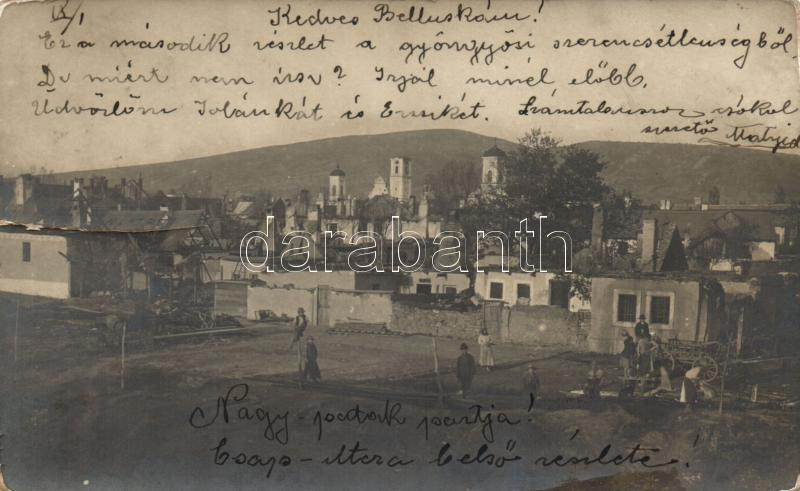 IX/1
Kedves Belluskám!
Ez a második részlet a gyöngyösi szerencsétlenségből.
De miért nem írsz? Irjál minél előbb.
Üdvözlöm Ilonkát és Erzsikét. Számtalanszor csókol
szerető Matyid
darabanth.com
Nagy-patak partja!
Csapó-utcza belső részlete!